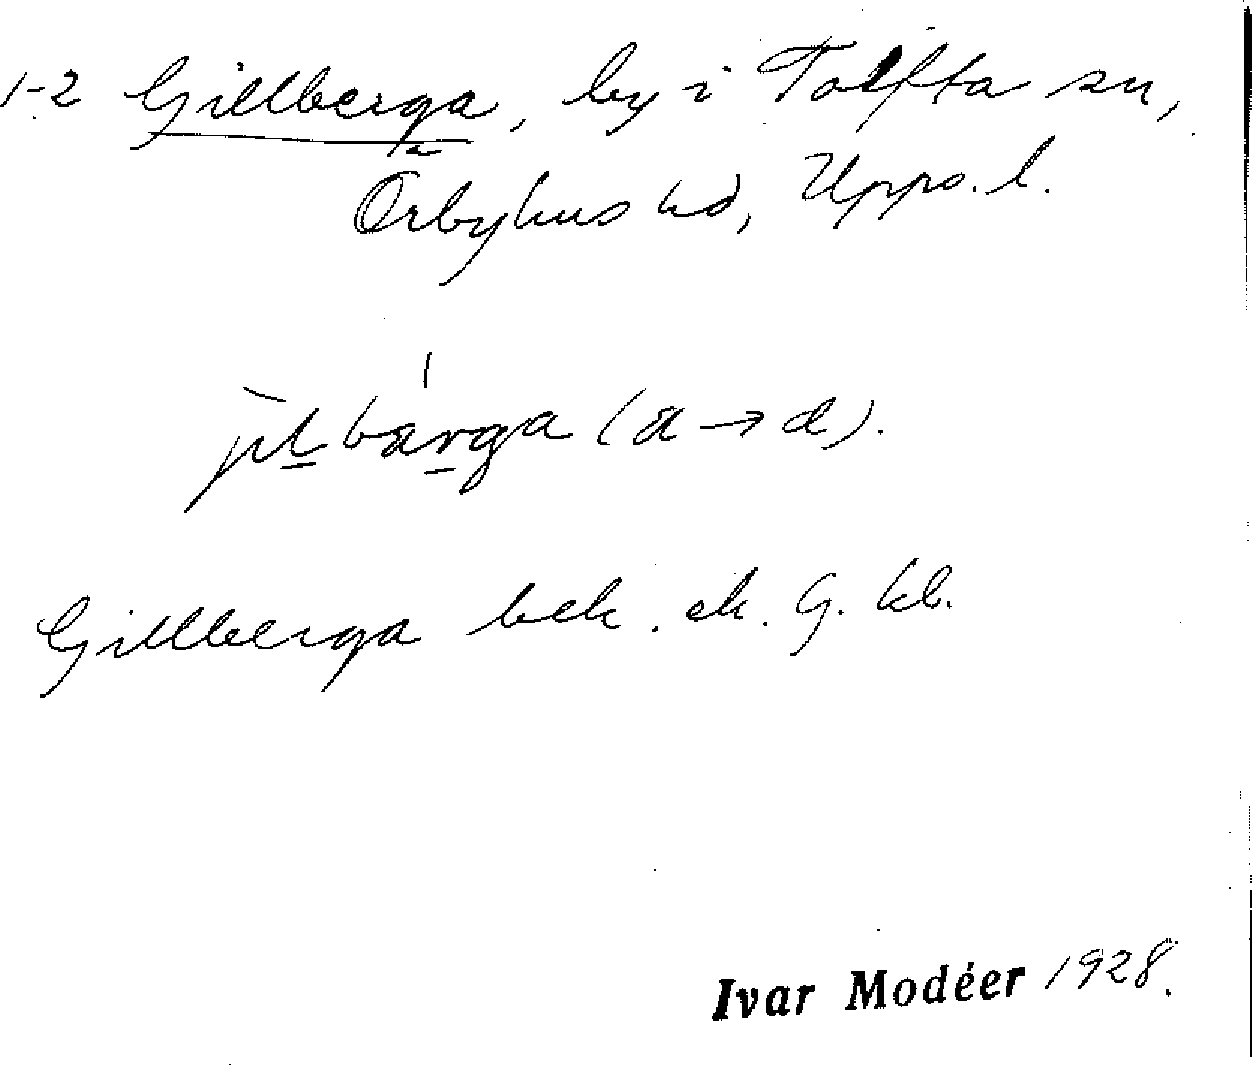 1-2 Gillberga, by i Tolfta sn,
Örbyhus hd, Upps. l.
jɩlbarga (a → æ).
Gillberga bek. ek. G. kb.
Ivar Modéer 1928.